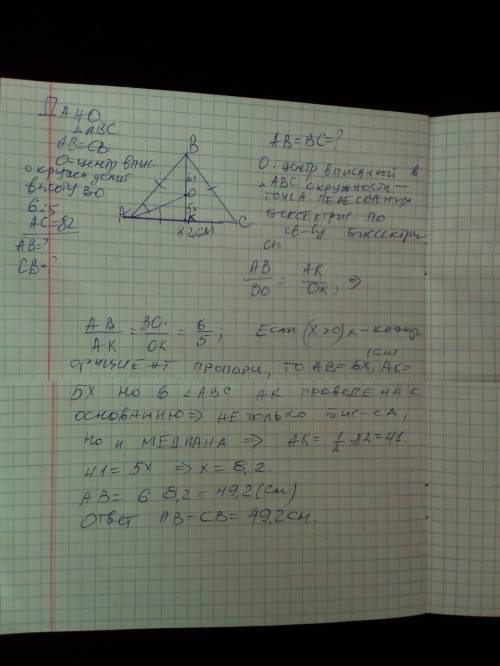 ДАНО
△ABC
AB=CB
O-центр впис
окружн делит
высоту 30
6:5
AC=82
AB=?
CB=?
B
6
O
5
A
K
C
82см
AB=BC=?
O-центр вписанной в
△ABC окружности —
точка пересечения
биссектрис. По
св-ву биссектри
сы
AB/BO = AK/OK, ⇒
AB/AK = BO/OK = 6/5; Если (x>0) x-коэф
(см)
фициент пропорц, то AB=6x, AK=
5x но в △ABC AK проведена к
основанию ⇒ не только бис-са,
но и медиана ⇒ AK= 1/2 · 82=41.
41=5x ⇒ x=8,2
AB= 6 8,2=49,2(см)
Ответ AB=CB=49,2см.